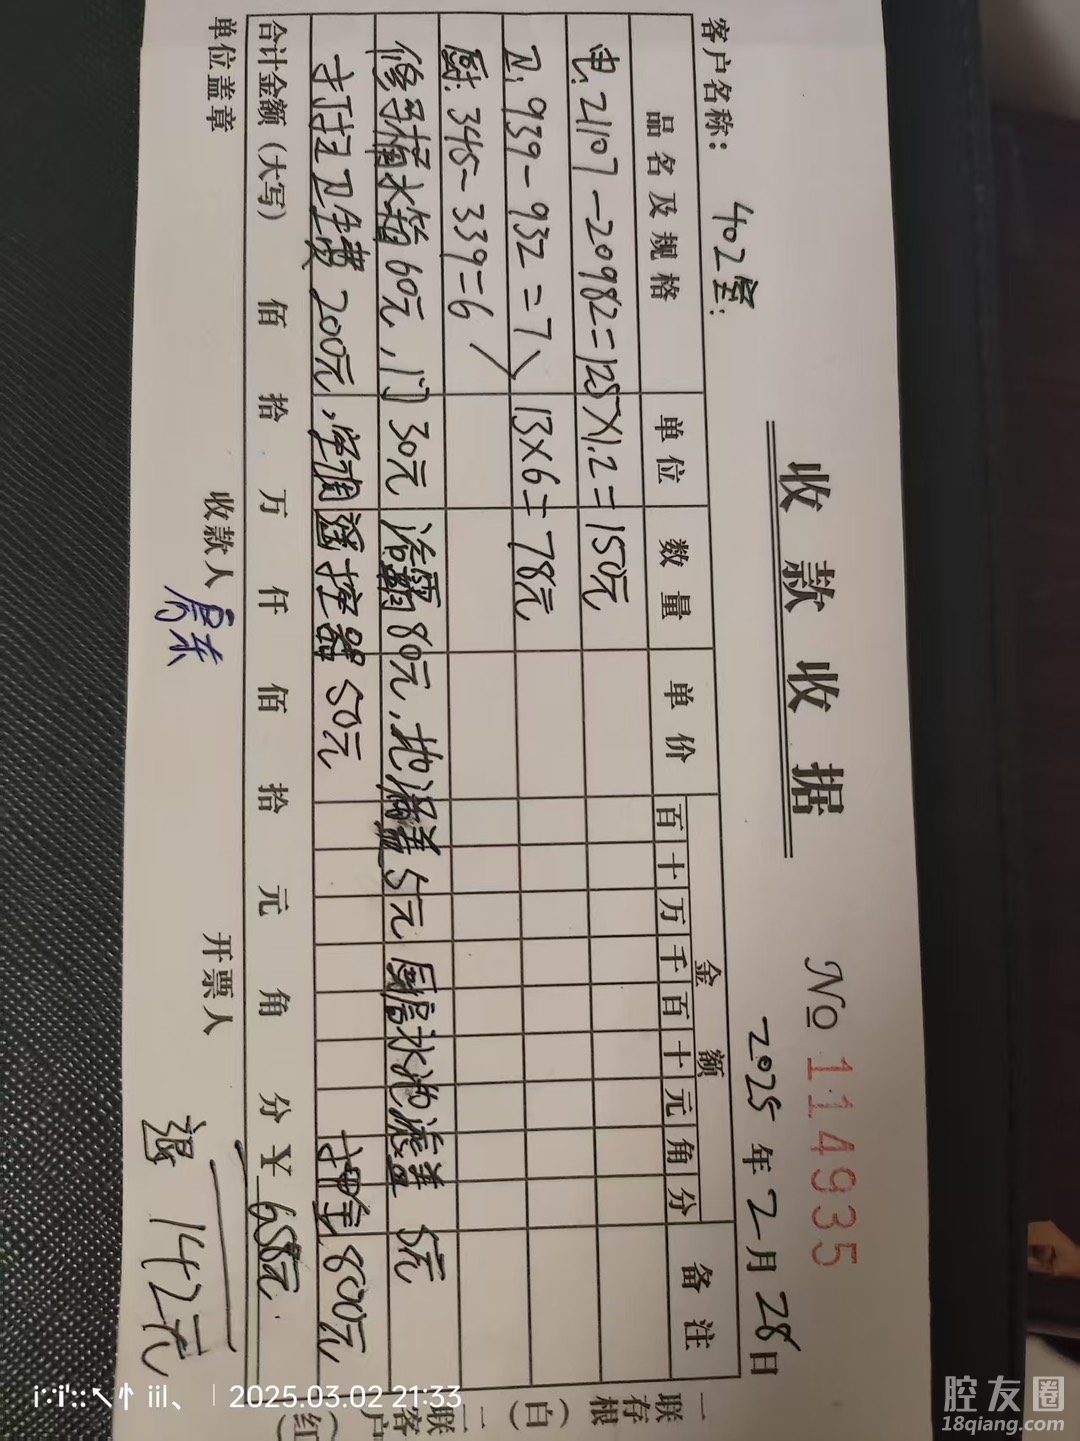 收款收据
№ 114935
客户名称： 402室： 2025年2月28日
品名及规格 单位 数量 单价 金额 备注
百 十 万 千 百 十 元 角 分
电：21107-20982=125×1.2=150元
卫：939-932=7 13×6=78元
厨：345-339=6
修马桶水箱60元，门30元 浴霸80元，地漏盖5元 厨房水池滤盖 5元
打扫卫生费200元，空调遥控器50元 押金800元
合计金额（大写） 佰 拾 万 仟 佰 拾 元 角 分 ¥ 658元
单位盖章 收款人 开票人 退 142元
一联存根（白）
二联客户（红
2025.03.02 21:33
腔友圈
18qiang.com